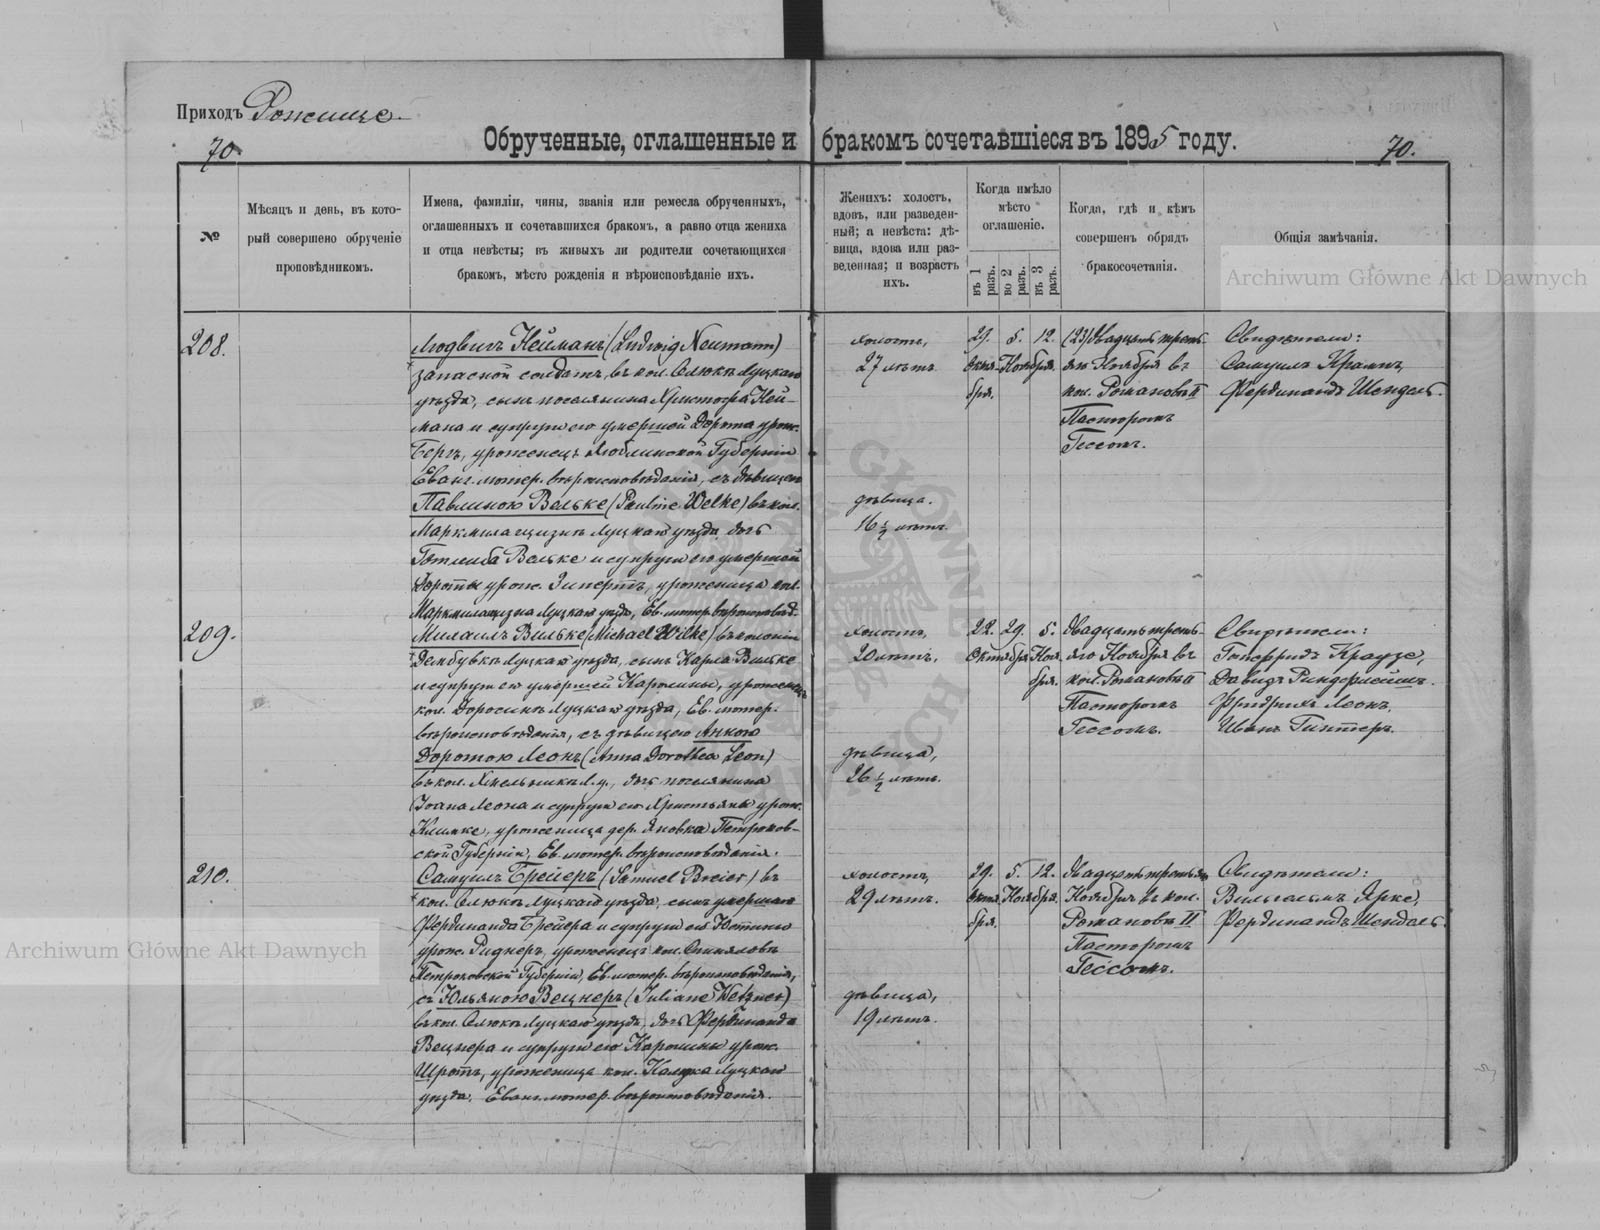 Приходъ Рожище.
70.
Обрученные, оглашенные и бракомъ сочетавшіеся въ 1895 году.
70.
№
Мѣсяцъ и день, въ кото-
рый совершено обрученіе
проповѣдникомъ.
Имена, фамиліи, чины, званія или ремесла обрученныхъ,
оглашенныхъ и сочетавшихся бракомъ, а равно отца жениха
и отца невѣсты; въ живыхъ ли родители сочетающихся
бракомъ, мѣсто рожденія и вѣроисповѣданіе ихъ.
Женихъ: холостъ,
вдовъ, или разведен-
ный; а невѣста: дѣ-
вица, вдова или раз-
веденная; и возрастъ
ихъ.
Когда имѣло
мѣсто
оглашеніе.
въ 1
разъ.
во 2
разъ.
въ 3
разъ.
Когда, гдѣ и кѣмъ
совершенъ обрядъ
бракосочетанія.
Общія замѣчанія.
Archiwum Główne Akt Dawnych
208.
Людвигъ Нейманъ (Ludwig Neumann)
запасной солдатъ, въ кол. Олюкъ Луцкаго
уѣзда, сынъ поселянина Христофа Ней-
мана и супруги его умершей Дорота урож.
Бергъ, уроженецъ Люблинской Губерніи
Еван. лютер. вѣроисповѣданія, съ дѣвицею
Павлиною Вельке (Pauline Welke) въ кол.
Луцкаго уѣзда, дочь
Готлиба Вельке и супруги его умершей
Дороты урож. уроженица кол.
Луцкаго уѣзда, Ев. лютер. вѣроисповѣд.
холостъ,
27 лѣтъ
дѣвица.
16 ½ лѣтъ.
29. 5. 12.
Октя- Ноября.
бря.
(23) Двадцать треть-
яго Ноября въ
кол. Романовъ II
Пасторомъ
Гессомъ.
Свидѣтели:
Самуилъ Крампъ,
Фердинандъ Шендель.
209.
Михаилъ Вильке (Michael Wilke) въ колоніи
Дембувкѣ Луцкаго уѣзда, сынъ Карла Вильке
и супруги его умершей Каролины, уроженецъ
кол. Доросинъ Луцкаго уѣзда, Ев. лютер.
вѣроисповѣданія, съ дѣвицею Анною
Доротою Леонъ (Anna Dorothea Leon)
въ кол. Хмельникъ Л. у., дочь поселянина
Іоана Леона и супруги его Христьяны урож.
Климке, уроженица дер. Яновка Петроков-
ской Губерніи, Ев. лютер. вѣроисповѣданія.
холостъ,
20 лѣтъ,
дѣвица,
26 ½ лѣтъ.
22. 29. 5.
Октября Ноя-
бря.
Двадцать треть-
яго Ноября въ
кол. Романовъ II
Пасторомъ
Гессомъ.
Свидѣтели:
Готфридъ Краузе,
Давидъ
Фридрихъ Леонъ,
Иванъ Гинтеръ.
210.
Самуилъ Брейеръ (Samuel Breier) въ
кол. Олюкъ Луцкаго уѣзда, сынъ умершаго
Фердинанда Брейера и супруги его Юстины
урож. Риднеръ, уроженецъ кол.
Петроковской Губерніи, Ев. лютер. вѣроисповѣданія,
съ Юльяною Вецнеръ (Juliane Wetzner)
въ кол. Олюкъ Луцкаго уѣзда, дочь Фердинанда
Вецнера и супруги его Каролины урож.
Шротъ, уроженица кол. Луцкаго
уѣзда, Еван. лютер. вѣроисповѣданія.
холостъ,
29 лѣтъ.
дѣвица,
19 лѣтъ.
29. 5. 12.
Октя- Ноября.
бря.
Двадцать третьяго
Ноября въ кол.
Романовъ II
Пасторомъ
Гессомъ.
Свидѣтели:
Вильгельмъ Ярке,
Фердинандъ Шендель.
Archiwum Główne Akt Dawnych